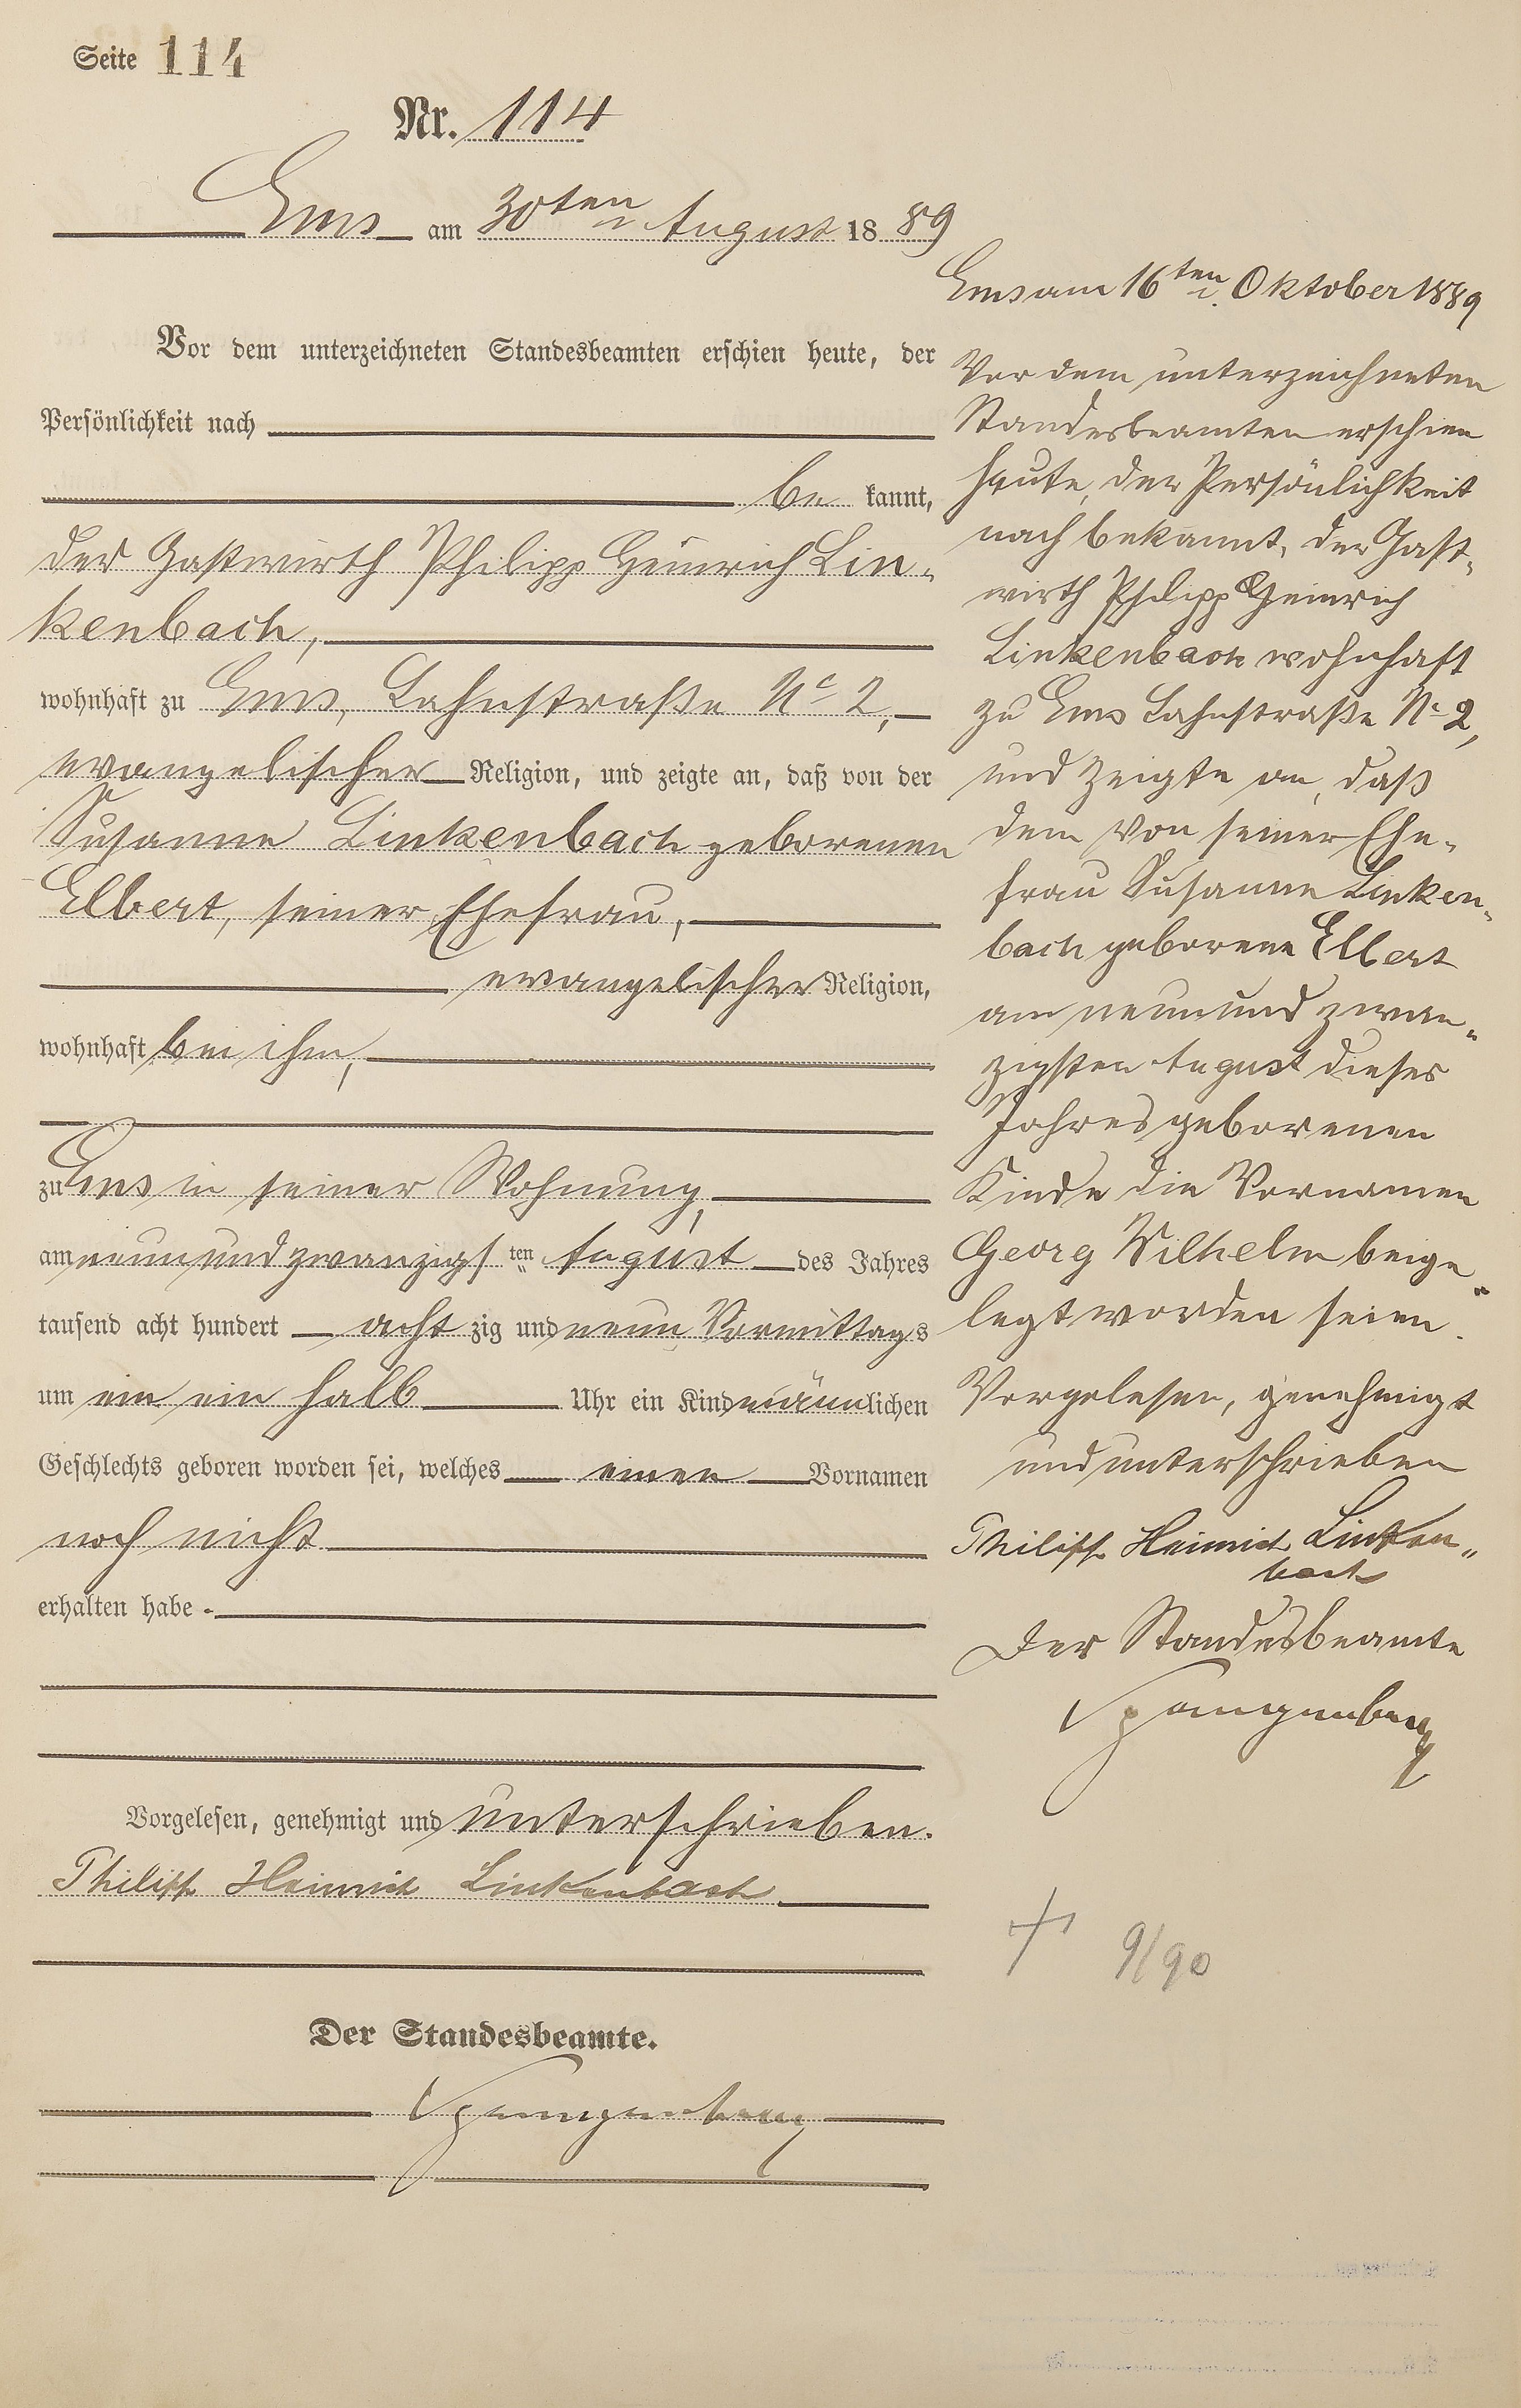 Seite 114
Nr. 114
Ems am 30ten August 1889
Vor dem unterzeichneten Standesbeamten erschien heute, der
Persönlichkeit nach
be kannt,
der Gastwirth Philipp Heinrich Lin-
kenbach,
wohnhaft zu Ems, Lahnstraße No 2,
evangelischer Religion, und zeigte an, daß von der
Susanne Linkenbach geborenen
Elbert, seiner Ehefrau,
evangelischer Religion,
wohnhaft bei ihm,
zu Ems in seiner Wohnung,
am neunundzwanzigsten August des Jahres
tausend acht hundert acht zig und neun Vormittags
um ein ein halb Uhr ein Kind männlichen
Geschlechts geboren worden sei, welches einen Vornamen
noch nicht
erhalten habe.
Vorgelesen, genehmigt und unterschrieben.
Philipp Heinrich Linkenbach
Der Standesbeamte.
Spangenberg
Ems am 16ten Oktober 1889
Vor dem unterzeichneten
Standesbeamten erschien
heute, der Persönlichkeit
nach bekannt, der Gast-
wirth Philipp Heinrich
Linkenbach wohnhaft
zu Ems Lahnstraße No 2,
und zeigte an, daß
dem von seiner Ehe-
frau Susanne Linken-
bach geborene Elbert
am neunundzwan-
zigsten August dieses
Jahres geborenen
Kinde die Vornamen
Georg Wilhelm beige-
legt worden seien.
Vorgelesen, genehmigt
und unterschrieben
Philipp Heinrich Linken-
bach
Der Standesbeamte
Spangenberg
† 9/90